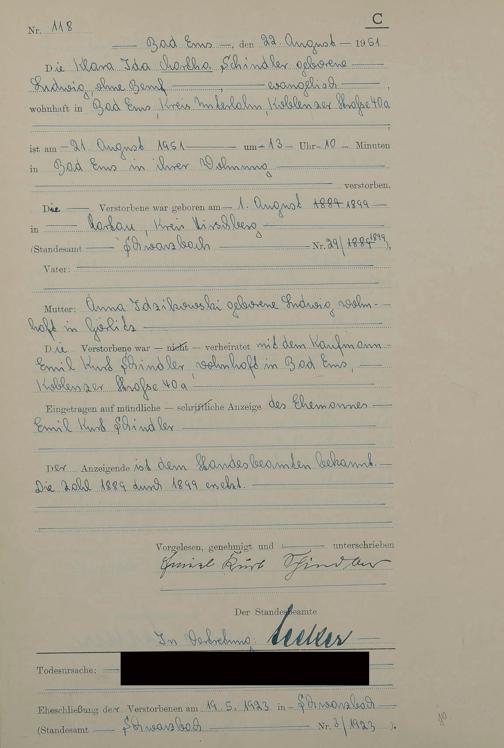 C
Nr. 118
Bad Ems, den 22. August 1951
Die Klara Ida Martha Schindler geborene
Ludwig, ohne Beruf, evangelisch,
wohnhaft in Bad Ems, Kreis Unterlahn, Koblenzer Straße 40a
ist am 21. August 1951 um 13 Uhr 10 Minuten
in Bad Ems in ihrer Wohnung
verstorben.
Die Verstorbene war geboren am 1. August 1889 1899
in Hartau, Kreis Hirschberg
(Standesamt Schwarzbach Nr. 29/1889 1899),
Vater:
Mutter: Anna Idzikowski geborene Ludwig wohn-
haft in Görlitz
Die Verstorbene war nicht verheiratet mit dem Kaufmann
Emil Kurt Schindler, wohnhaft in Bad Ems,
Koblenzer Straße 40a
Eingetragen auf mündliche schriftliche Anzeige des Ehemannes
Emil Kurt Schindler
Der Anzeigende ist dem Standesbeamten bekannt.
Die Zahl 1889 durch 1899 ersetzt.
Vorgelesen, genehmigt und unterschrieben
Emil Kurt Schindler
Der Standesbeamte
In Vertretung:
Todesursache:
Eheschließung der Verstorbenen am 19.5.1923 in Schwarzbach
(Standesamt Schwarzbach Nr. 3/1923).